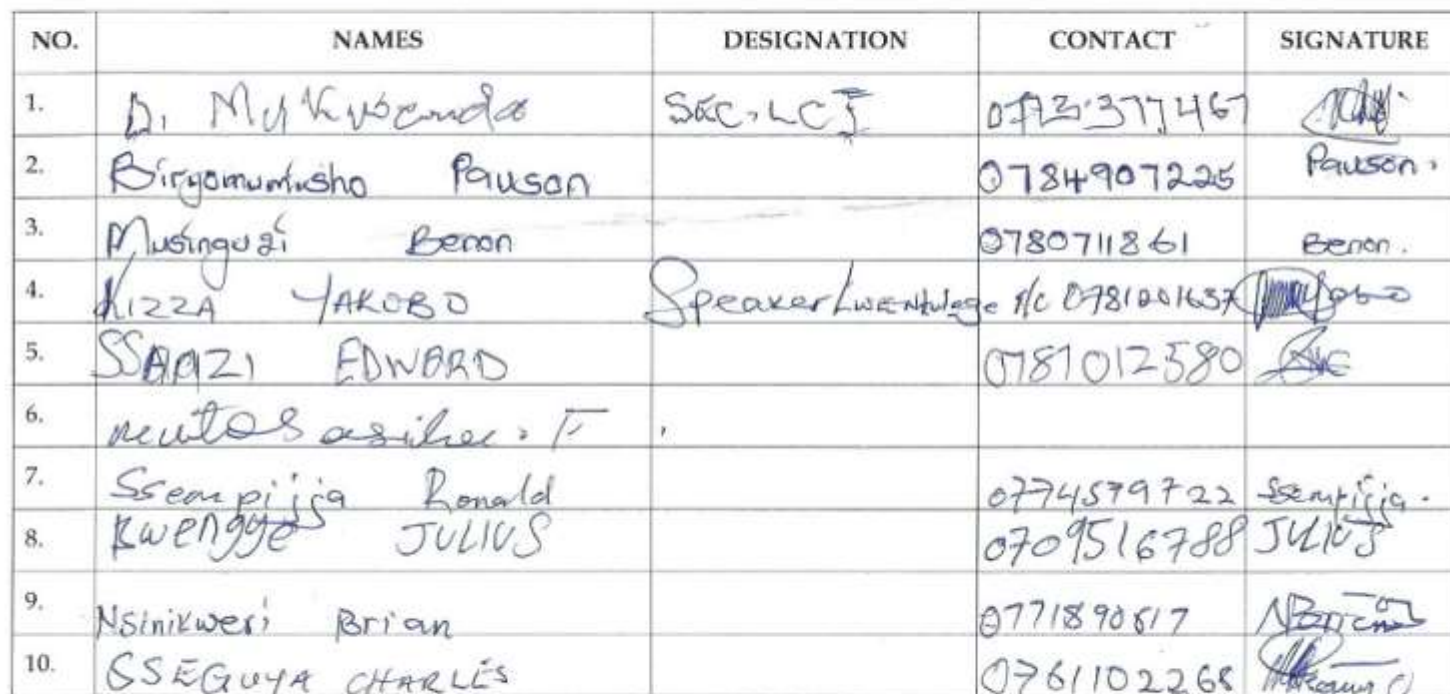 NO. NAMES DESIGNATION CONTACT SIGNATURE
1. D. Mukubenda SEC. LCI 0773377467
2. Biryomumisho Pauson 0784907225 Pauson.
3. Musinguzi Benon 0780711861 Benon.
4. KIZZA YAKOBO Speaker 0781201637
5. SSAAZI EDWARD 0781012580
6.
7. Ssempijja Ronald 0774579722 Ssempijja.
8. Kwengye JULIUS 0709516788 JULIUS
9. Nsinikweri Brian 0771890617 NBrian
10. SSEGUYA CHARLES 0761102268